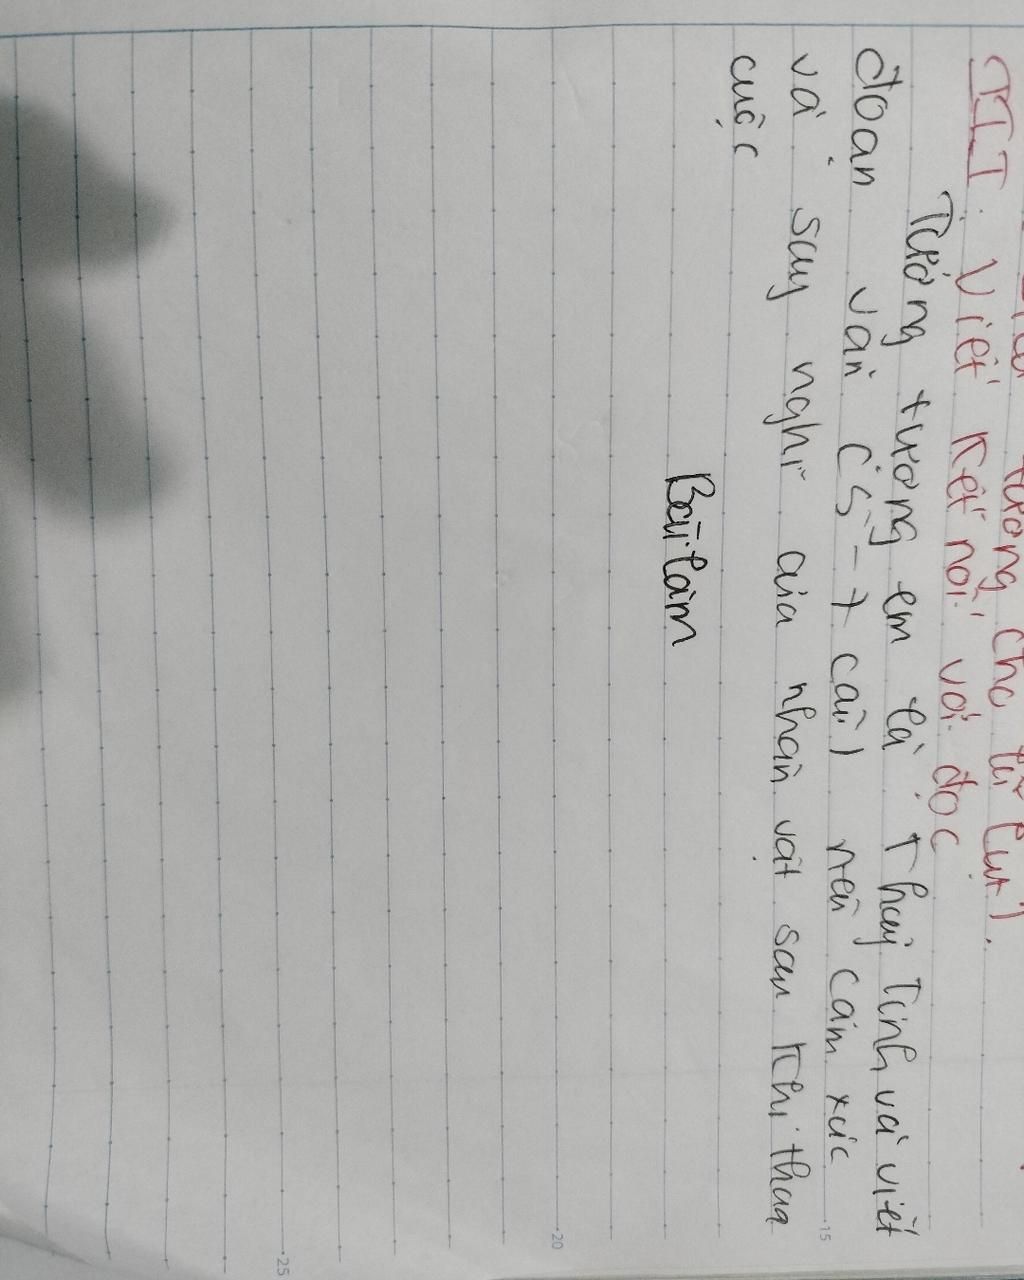 tượng cho lũ lụt).
III. Viết kết nối với đọc
Tưởng tượng em là Thuỷ Tinh và viết
đoạn văn (5-7 câu) nêu cảm xúc
và suy nghĩ của nhân vật sau khi thua
cuộc
Bài làm
15
20
25